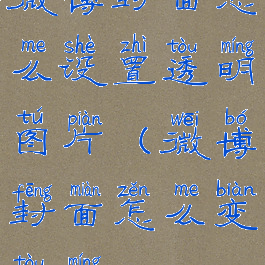 微博封面怎
me shè zhì tòu míng
么设置透明
tú piàn wēi bó
图片(微博
fēng miàn zěn me biàn
封面怎么变
tòu míng